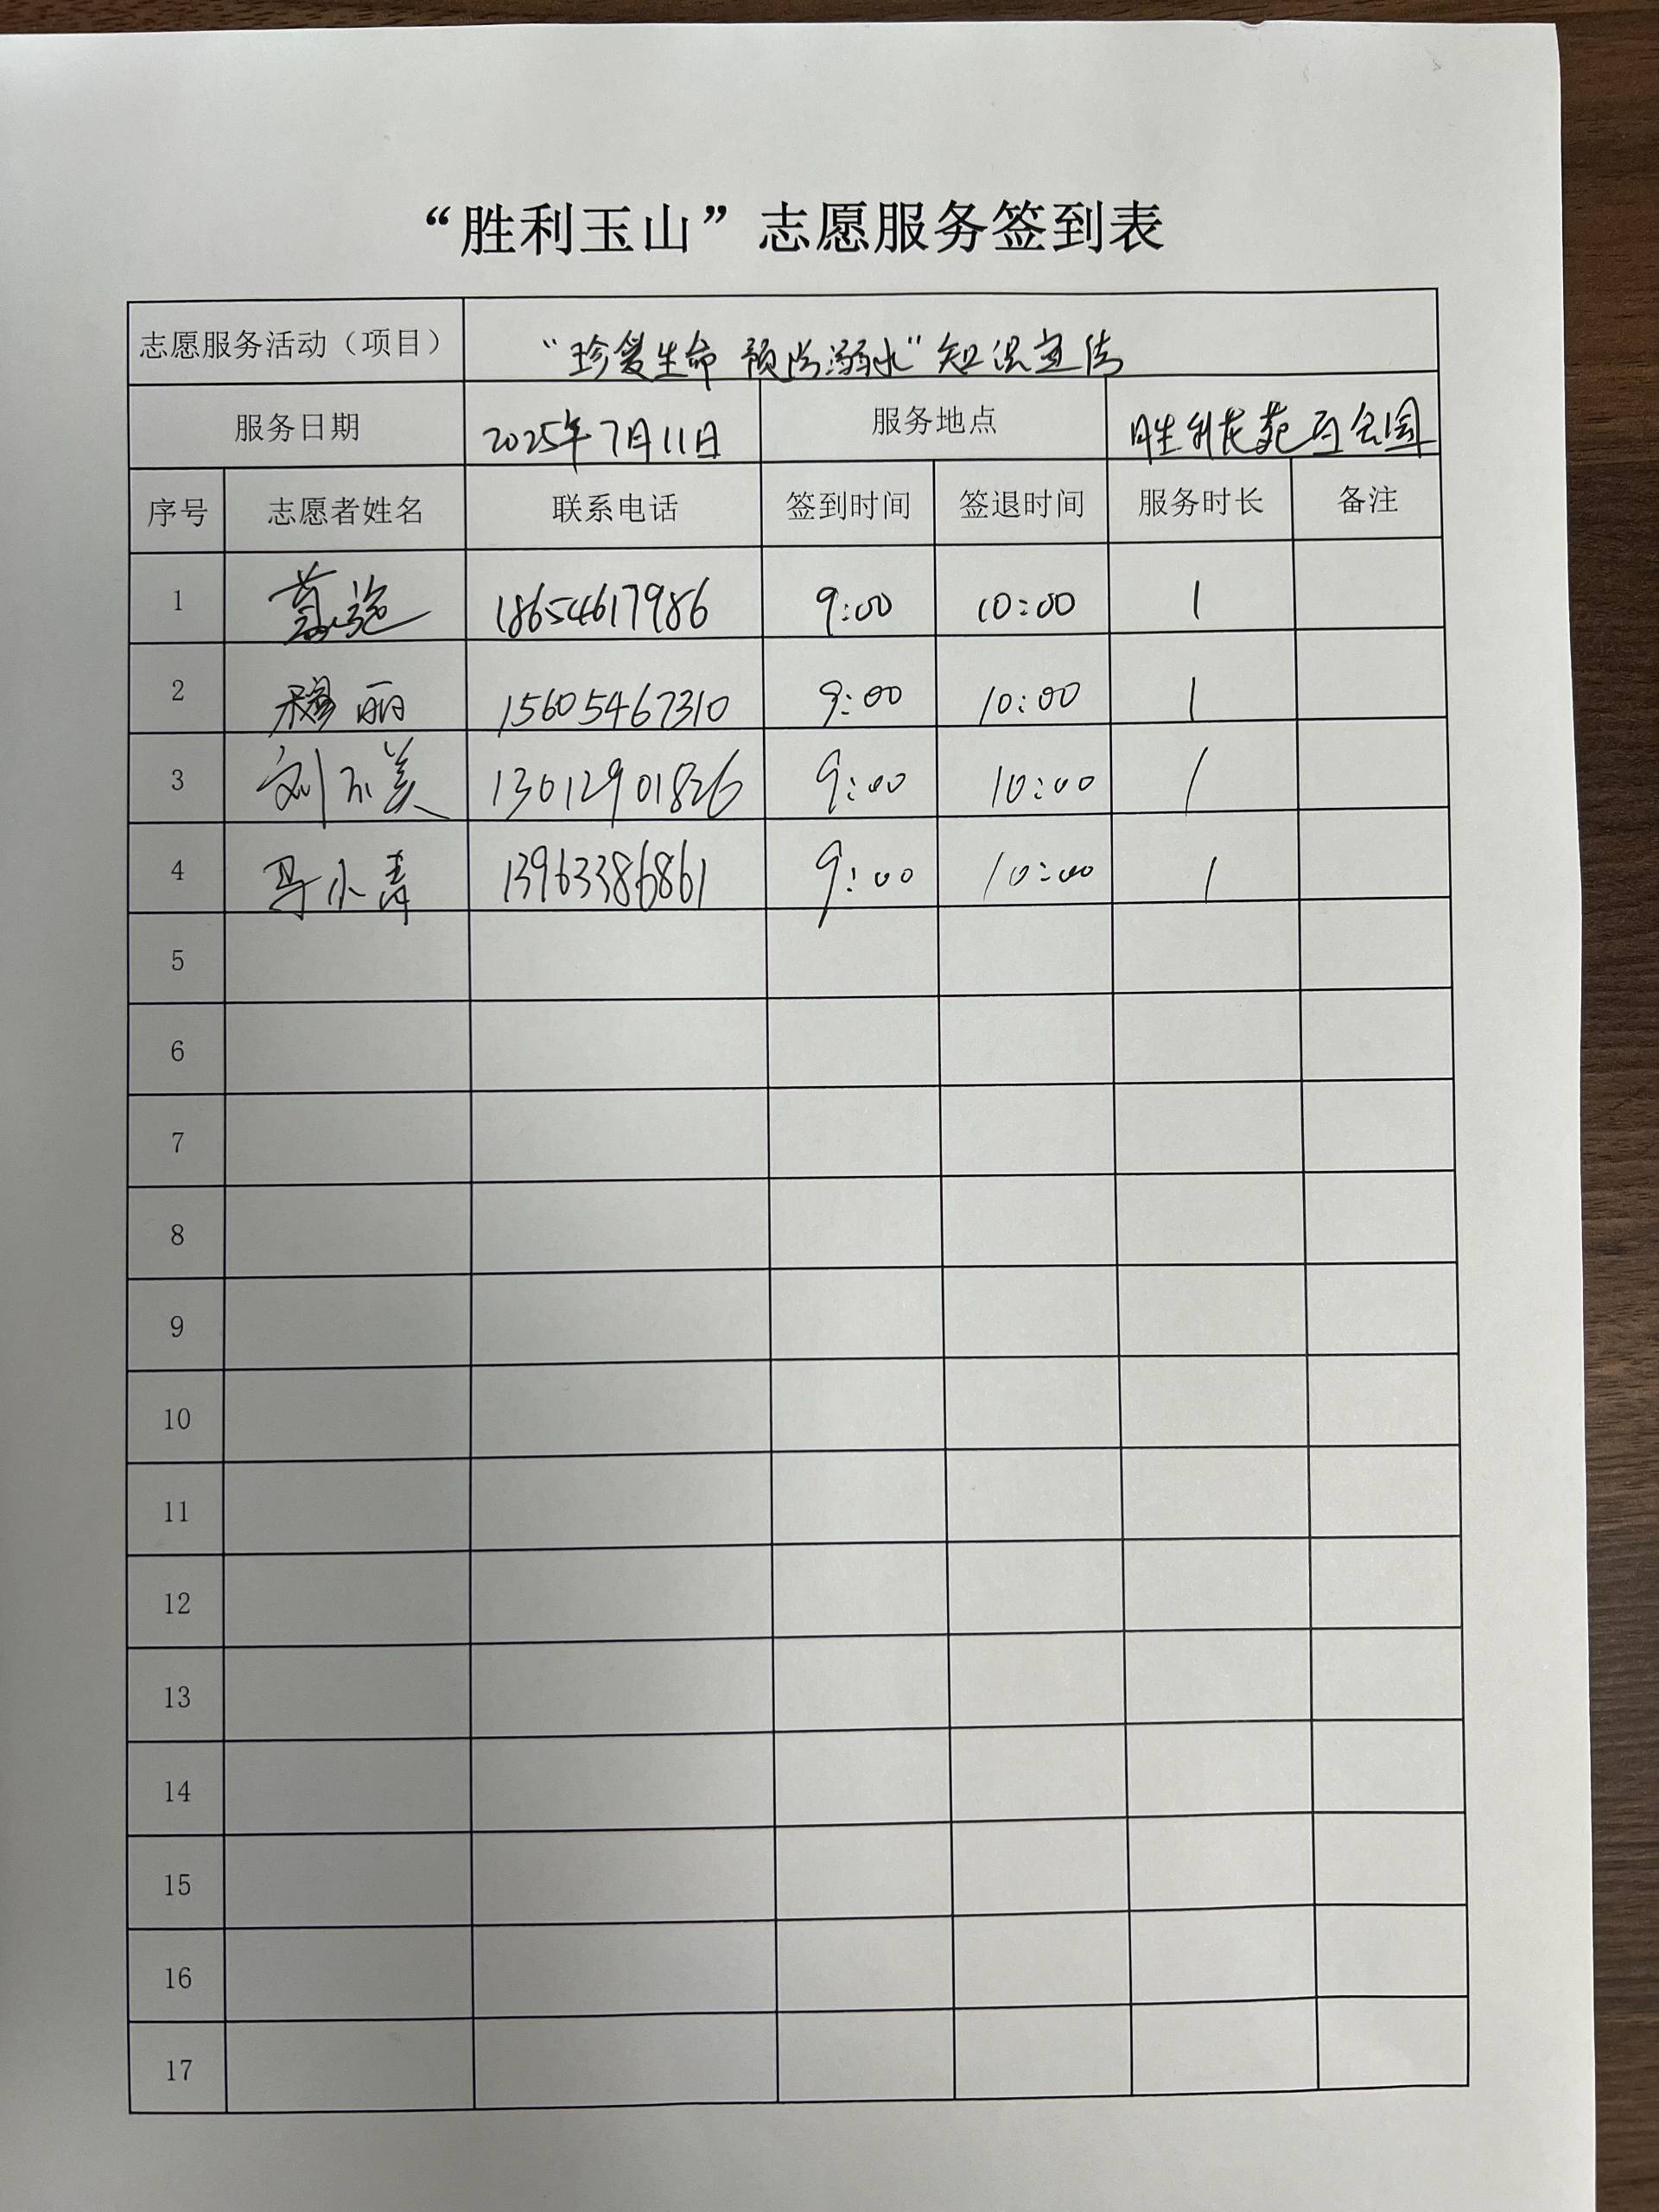 “胜利玉山”志愿服务签到表
志愿服务活动（项目） “珍爱生命 预防溺水”知识宣传
服务日期 2025年7月11日 服务地点 胜利花苑西公园
序号 志愿者姓名 联系电话 签到时间 签退时间 服务时长 备注
1 18654617986 9:00 10:00 1
2 穆丽 15605467310 9:00 10:00 1
3 刘 美 13012901826 9:00 10:00 1
4 马小青 13963386861 9:00 10:00 1
5
6
7
8
9
10
11
12
13
14
15
16
17